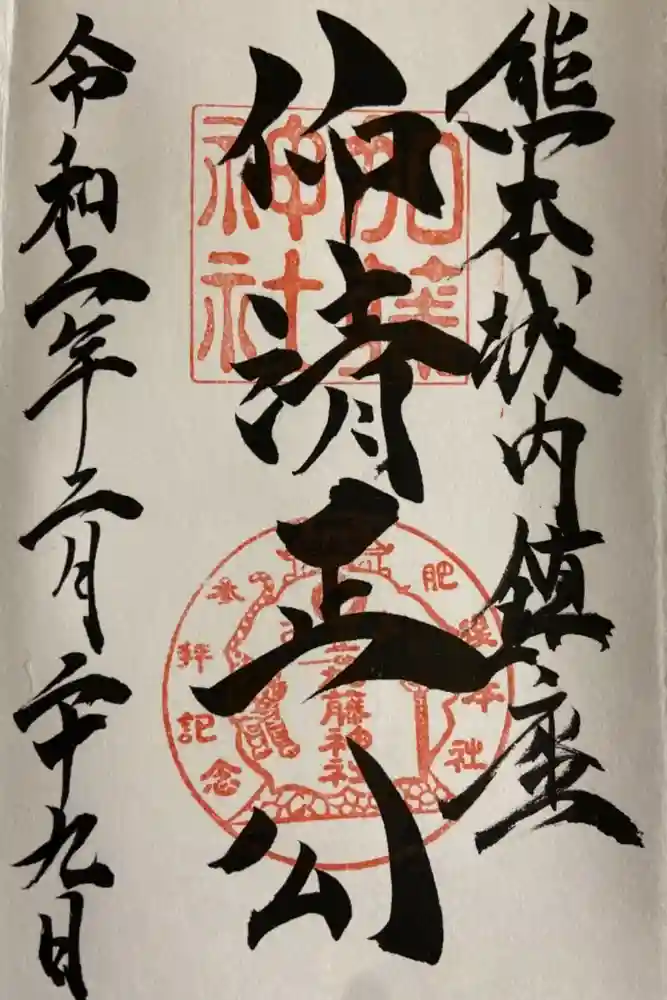 熊本城内鎮座
仰清正公
令和二年二月二十九日
加藤
神社
肥後本社
参拝記念
加藤神社